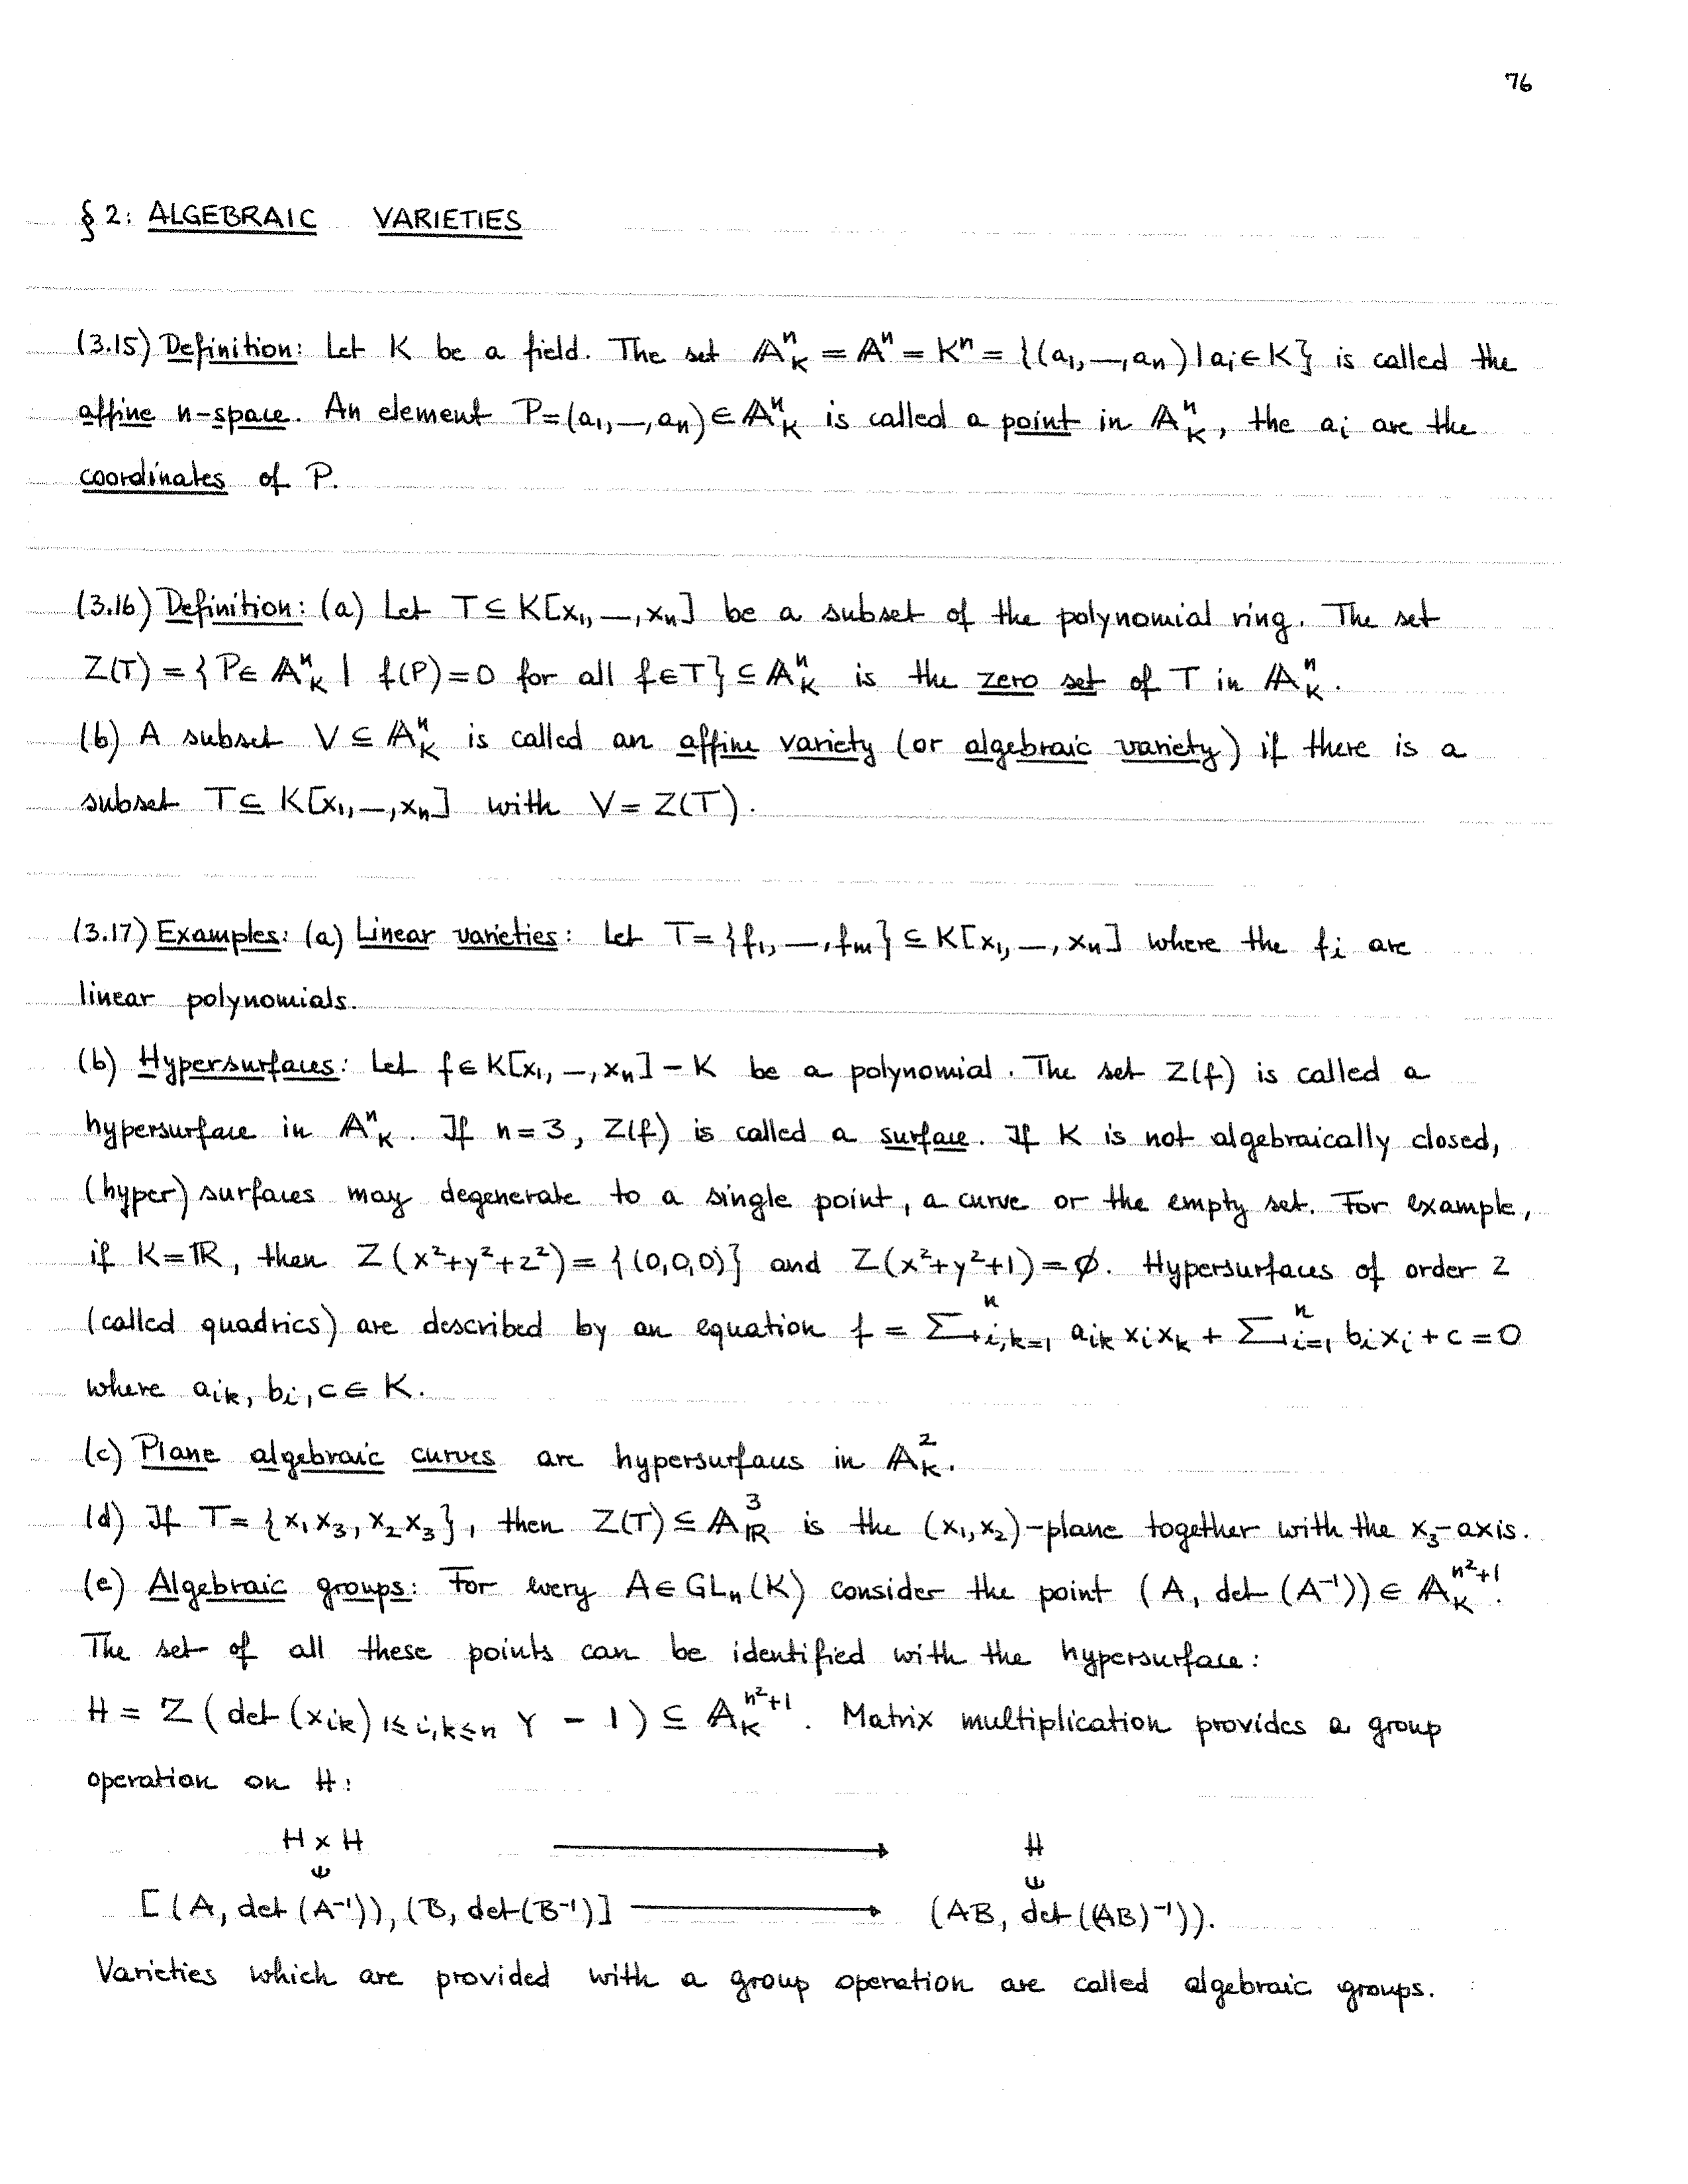 76
§ 2: ALGEBRAIC VARIETIES
(3.15) Definition: Let K be a field. The set 𝔸ⁿ_K = 𝔸ⁿ = Kⁿ = {(a₁, —, aₙ) | aᵢ ∈ K} is called the
affine n-space. An element P = (a₁, —, aₙ) ∈ 𝔸ⁿ_K is called a point in 𝔸ⁿ_K, the aᵢ are the
coordinates of P.
(3.16) Definition: (a) Let T ⊆ K[x₁, —, xₙ] be a subset of the polynomial ring. The set
Z(T) = {P ∈ 𝔸ⁿ_K | f(P) = 0 for all f ∈ T} ⊆ 𝔸ⁿ_K is the zero set of T in 𝔸ⁿ_K.
(b) A subset V ⊆ 𝔸ⁿ_K is called an affine variety (or algebraic variety) if there is a
subset T ⊆ K[x₁, —, xₙ] with V = Z(T).
(3.17) Examples: (a) Linear varieties: Let T = {f₁, —, fₘ} ⊆ K[x₁, —, xₙ] where the fᵢ are
linear polynomials.
(b) Hypersurfaces: Let f ∈ K[x₁, —, xₙ] – K be a polynomial. The set Z(f) is called a
hypersurface in 𝔸ⁿ_K. If n = 3, Z(f) is called a surface. If K is not algebraically closed,
(hyper) surfaces may degenerate to a single point, a curve or the empty set. For example,
if K = ℝ, then Z(x² + y² + z²) = {(0,0,0)} and Z(x² + y² + 1) = ∅. Hypersurfaces of order 2
(called quadrics) are described by an equation f = ∑ⁿ_{i,k=1} a_{ik} xᵢ x_k + ∑ⁿ_{i=1} bᵢ xᵢ + c = 0
where a_{ik}, bᵢ, c ∈ K.
(c) Plane algebraic curves are hypersurfaces in 𝔸²_K.
(d) If T = {x₁x₃, x₂x₃}, then Z(T) ⊆ 𝔸³_ℝ is the (x₁, x₂)-plane together with the x₃-axis.
(e) Algebraic groups: For every A ∈ GLₙ(K) consider the point (A, det(A⁻¹)) ∈ 𝔸^{n²+1}_K.
The set of all these points can be identified with the hypersurface:
H = Z(det(x_{ik})_{1≤i,k≤n} Y – 1) ⊆ 𝔸^{n²+1}_K. Matrix multiplication provides a group
operation on H:
H × H ⟶ H
[(A, det(A⁻¹)), (B, det(B⁻¹)] ⟶ (AB, det((AB)⁻¹)).
Varieties which are provided with a group operation are called algebraic groups.